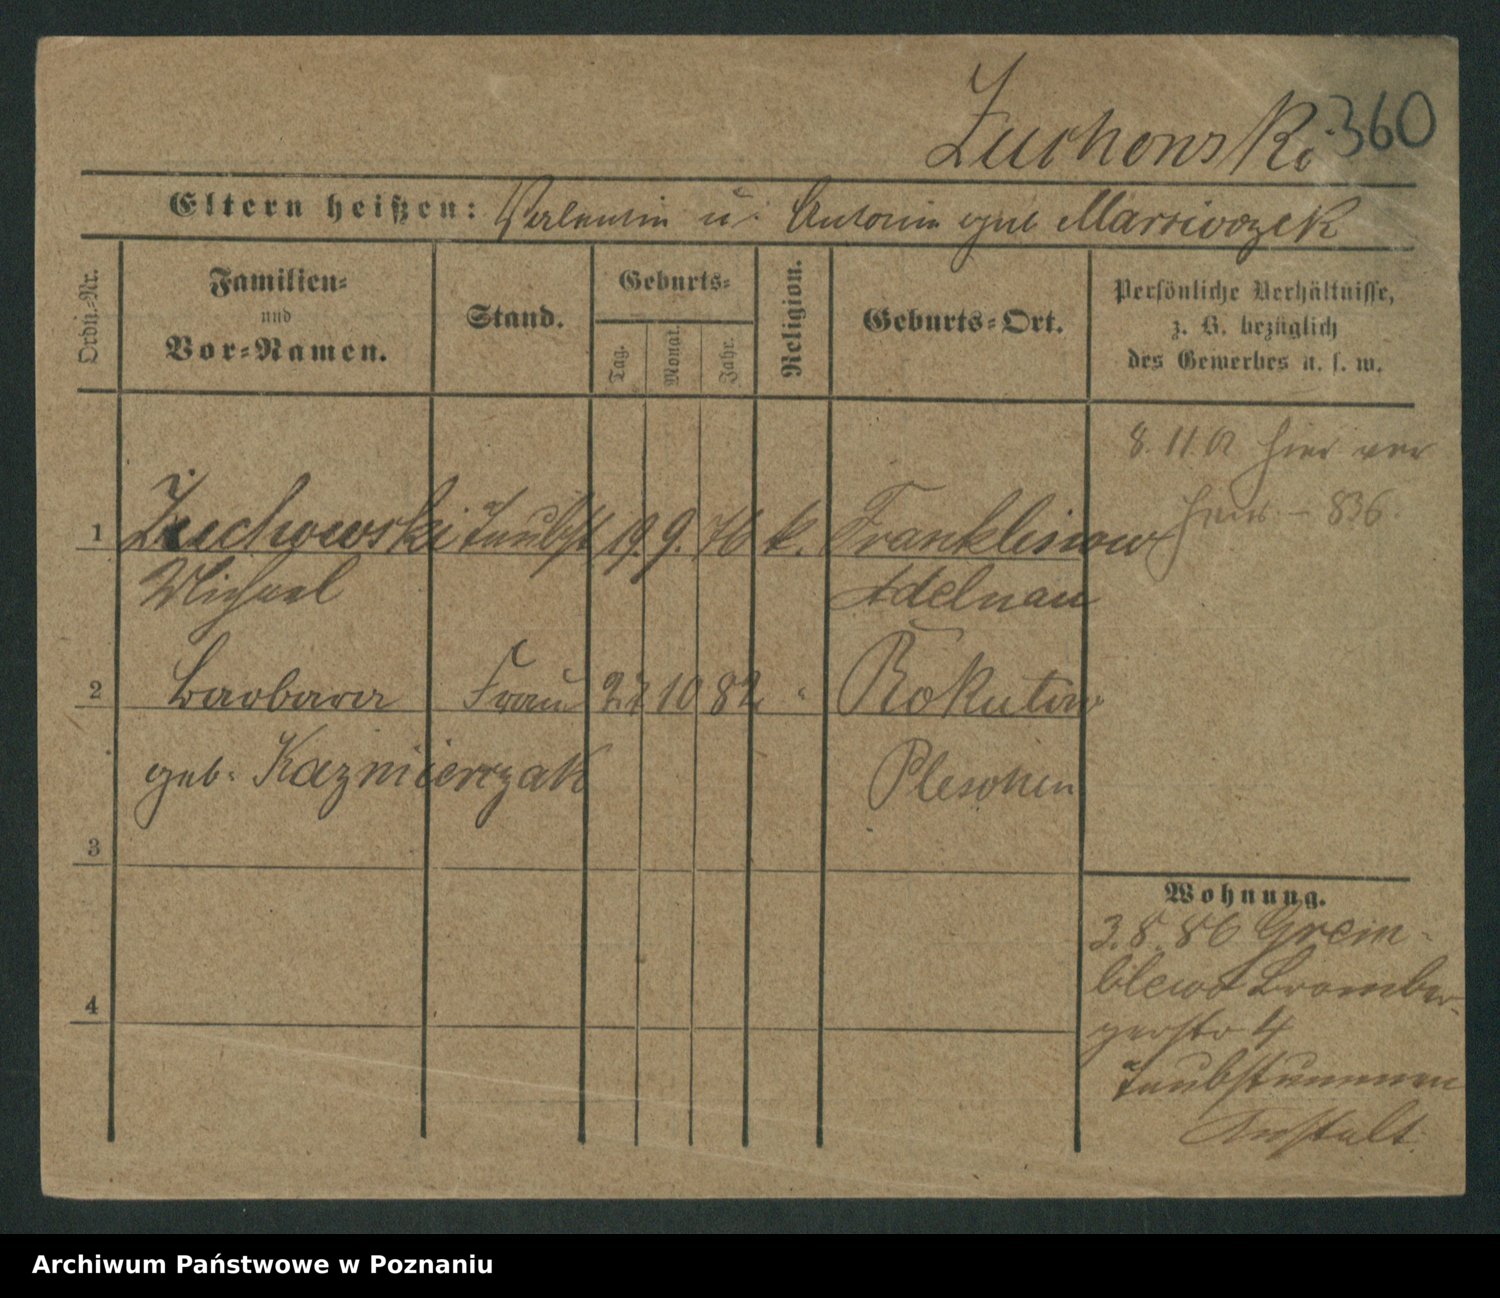 Żuchowski 360
Eltern heißen: Valentin u. Antonie geb Marciwczek
Ordn.-Nr.
Familien-
und
Vor-Namen.
Stand.
Geburts-
Tag.
Monat.
Jahr.
Religion.
Geburts-Ort.
Persönliche Verhältnisse,
z. B. bezüglich
des Gewerbes u. s. w.
8. 11. 01 hier ver
heir. – 836.
1 Żuchowski Taubst 19. 9. 76 k. Franklinow
Michael Adelnau
2 Barbara Frau 22 10 82 " Rokutow
geb. Kazmierczak Pleschen
3
4
Wohnung.
3. 8. 86
Bromber-
gerstr 4
Taubstummen
Anstalt
Archiwum Państwowe w Poznaniu